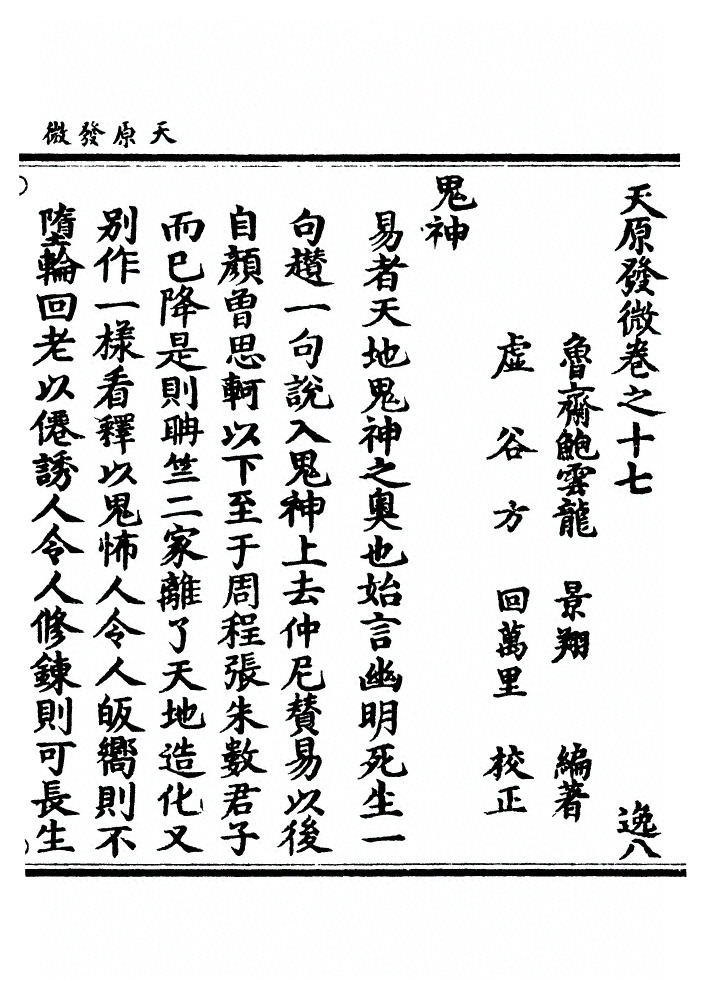 天原發微
天原發微卷之十七　逸八
魯齋鮑雲龍　景翔　編著
虛谷方　回萬里　校正
鬼神
易者天地鬼神之奥也始言幽明死生一
句趲一句說入鬼神上去仲尼賛易以後
自顏曾思軻以下至于周程張朱數君子
而已降是則聃竺二家離了天地造化又
別作一樣看釋以鬼怖人令人皈嚮則不
墮輪回老以僊誘人令人修鍊則可長生